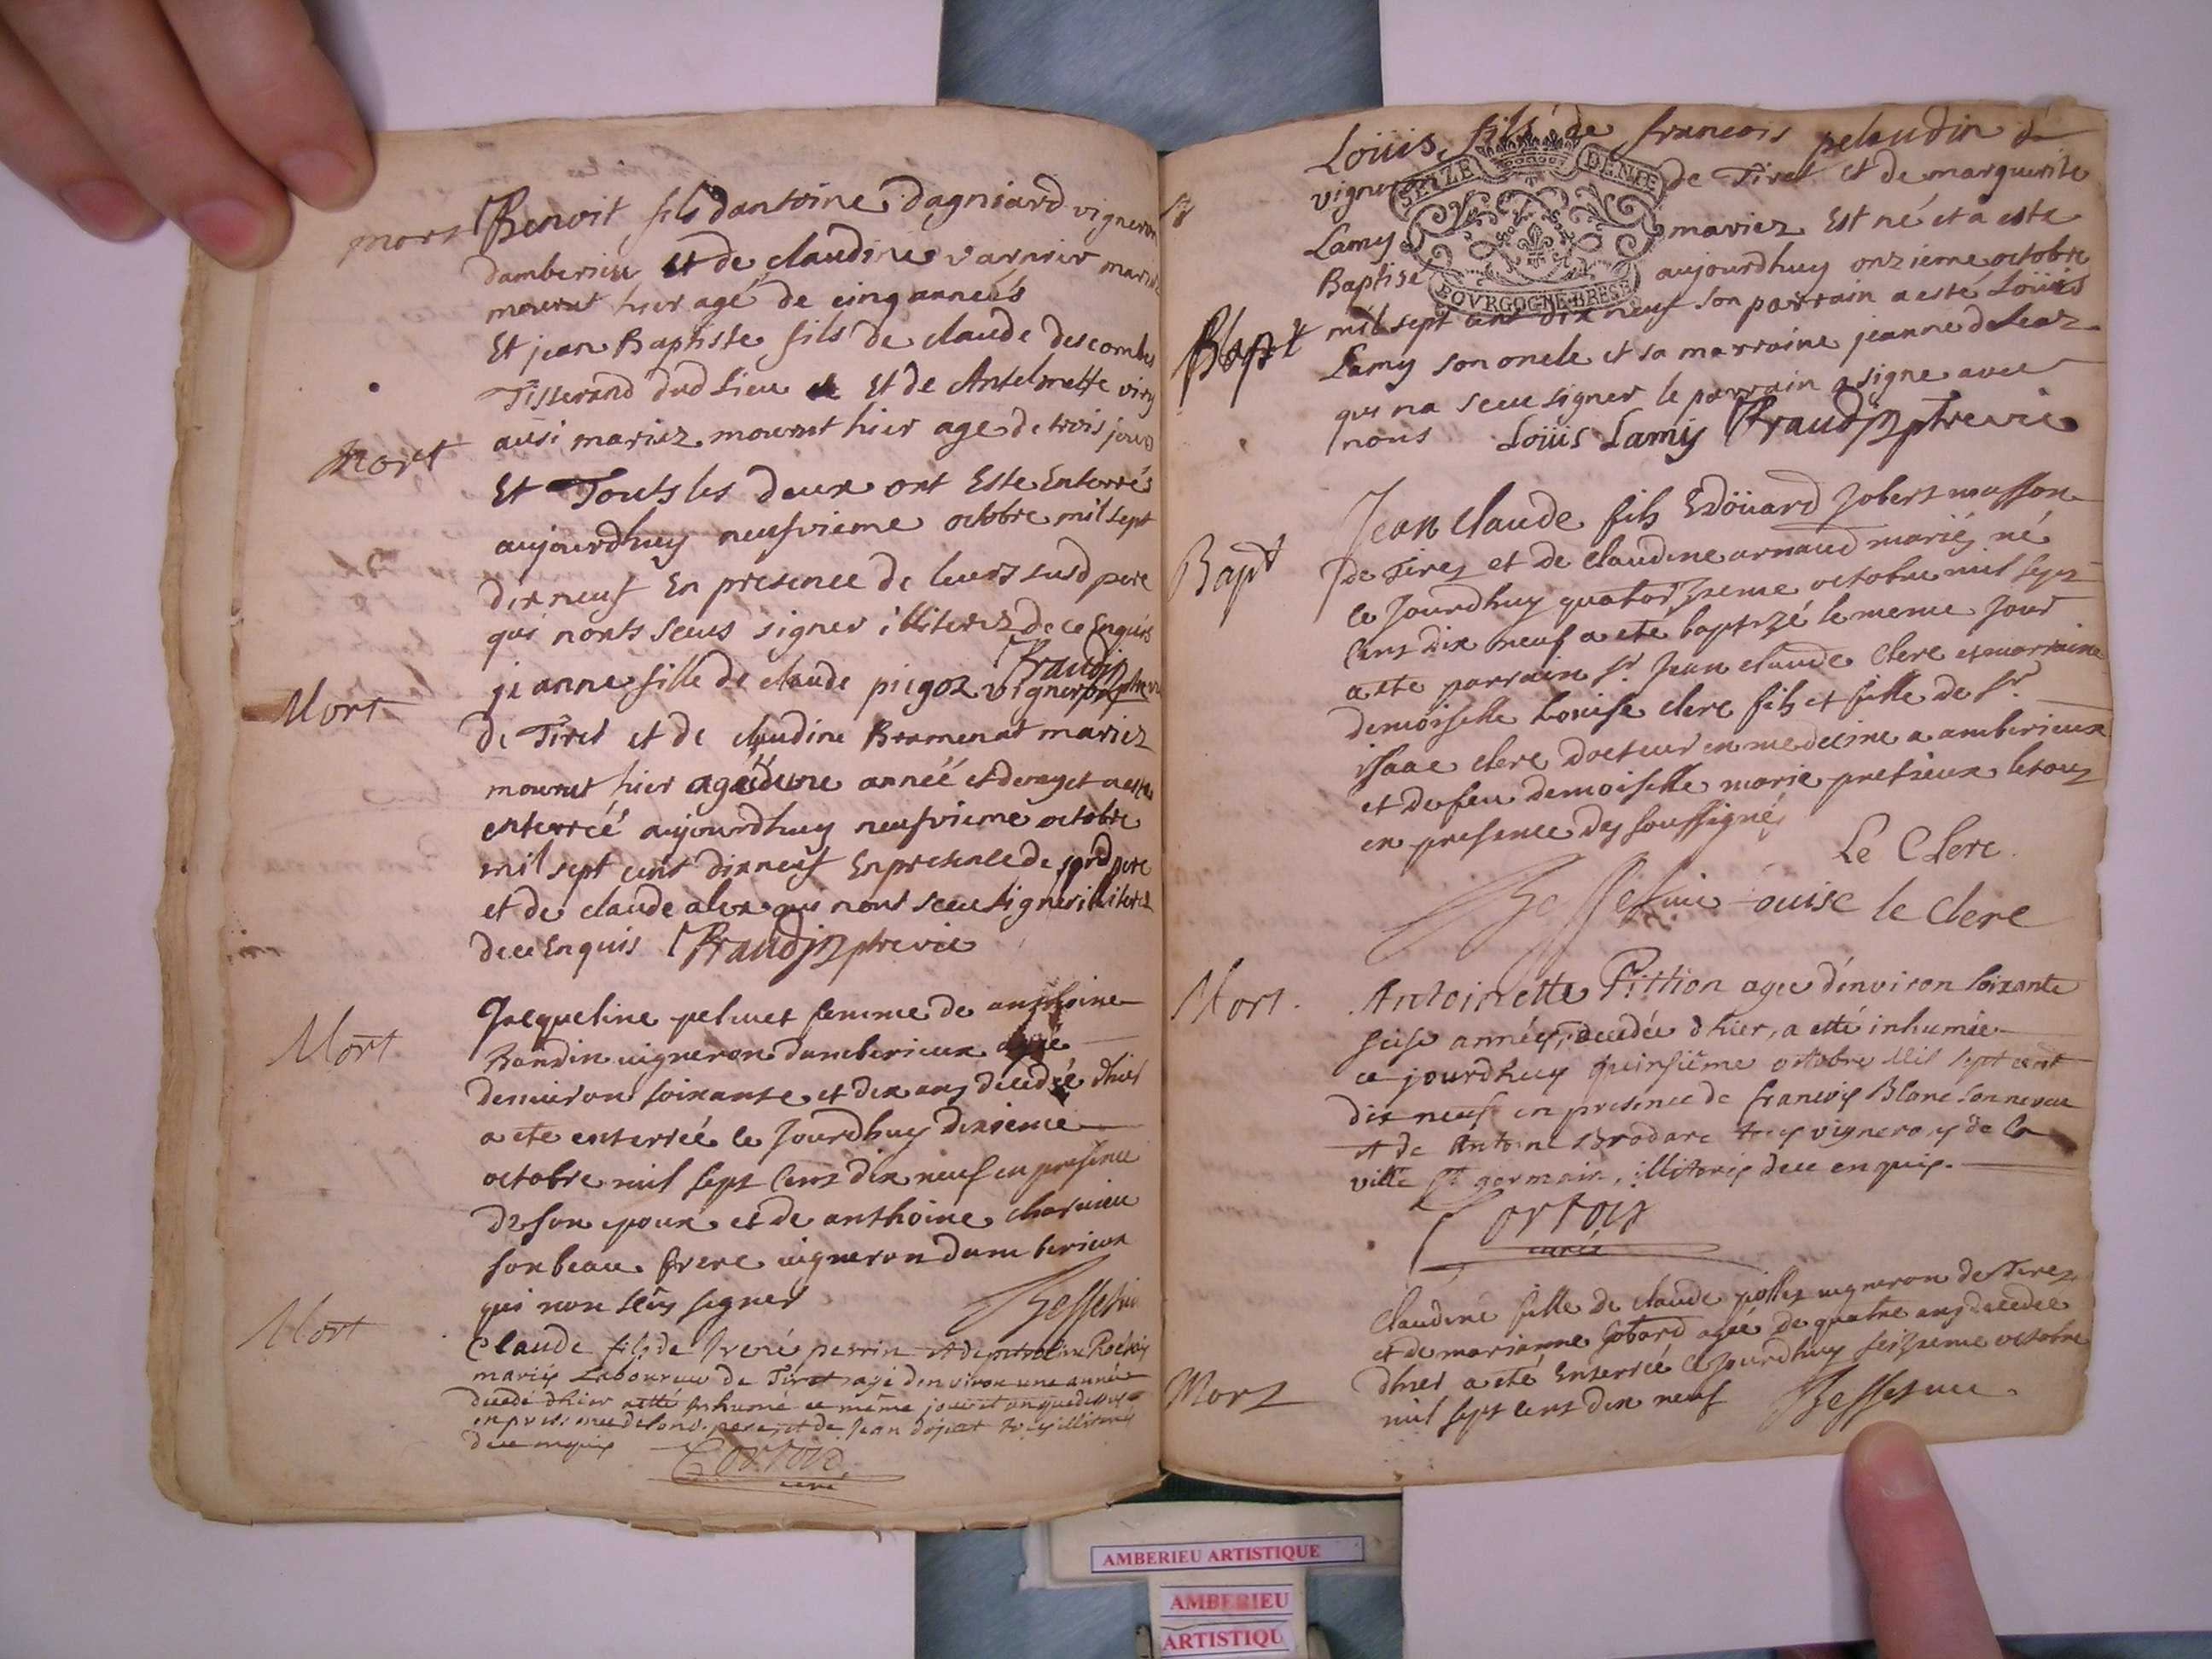 mort Benoit fils dantoine Dagniard vigneron
damberieu et de claudine varnier mariés
mourut hier agé de cinq années
Et jean Baptiste fils de claude descombes
Tisserand dud lieu et de Antelmette viry
Mort
ausi mariez mourut hier age de trois jours
Et Touts les deux ont Este Enterrés
aujourdhuy neufvieme octobre mil sept
dixneuf En presence de leurs susd pere
qui nonts sceus signer illiterez de ce Enquis
Braudin ptre vic
Mort
jeanne fille de claude pigoz vigneron
de Tiret et de claudine Bramenat mariez
mourut hier agéé dune année et demy et a esté
enterréé aujourdhuy neufvieme octobre
mil sept cent dixneuf En presence de sond pere
et de claude alex qui nont sceu signer illiterez
de ce Enquis Braudin ptre vic
Mort
Jacqueline peluet femme de anthoine
Bondin vigneron damberieux agéé
denuiron soixante et dix ans decedeé dhier
a ete enterreé ce Jourdhuy dixieme
octobre mil sept Cens dix neuf en presence
de son epoux et de anthoine charuieu
son beau frere uigneron damberieux
qui non sceu signer Bessesuie
Mort
Claude fils de irené perrin et de
mariés Laboureur de Tiret agé denviron une année
decedé dhier a esté Inhumé ce même jour et an que dessus
en presence de sond. pere et de Jean tous illiterés
de ce enquis
Cortois
curé
Loüis fils de francois pelaudin
vigneron de Tiret et de marguerite
Lamy mariez Est né et a este
Baptisé aujourdhuy onzieme octobre
SEIZE DENIE
BOVRGOGNE BRESE
Bapt
mil sept cent dix neuf son parrain a esté Loüis
Lamy son oncle et sa marraine jeanne deleaz
qui na sceu signer le parrain a signe avec
nous Loüis Lamy Braudin ptre vic
Bapt
Jean Claude fils Edoüard Jobert masson
de Tirez et de Claudine arnaud mariés né
ce Jourdhuy quatorzieme octobre mil sept
Cens dix neuf a eté baptizé le meme Jour
a ete parrain Sr. Jean claude Clerc et marraine
demoiselle Louise clerc fils et fille de Sr.
isaac clerc docteur en medecine a amberieux
et de feu demoiselle marie pretieux le tout
en presence des soussignés
Le Clerc
Bessesuie Louise le Clerc
Mort.
Antoinette Pithion agee d'environ soixante
seise années, decedée dhier, a esté inhumée
ce jourdhuy quinsiême octobre Mil sept cent
dix neuf en presence de francois Blanc son neveu
et de Antoine Brodare tous vignerons de la
ville St germain, illiterés de ce enquis.
Cortois
curé
Mort
Claudine fille de claude pollez uigneron de Tirez
et de marianne Gobard agée de quatre ans decedee
dhier a eté Enterreé ce Jourdhuy seizieme octobre
mil sept cens dix neuf Bessesuie
AMBERIEU ARTISTIQUE
AMBERIEU
ARTISTIQU